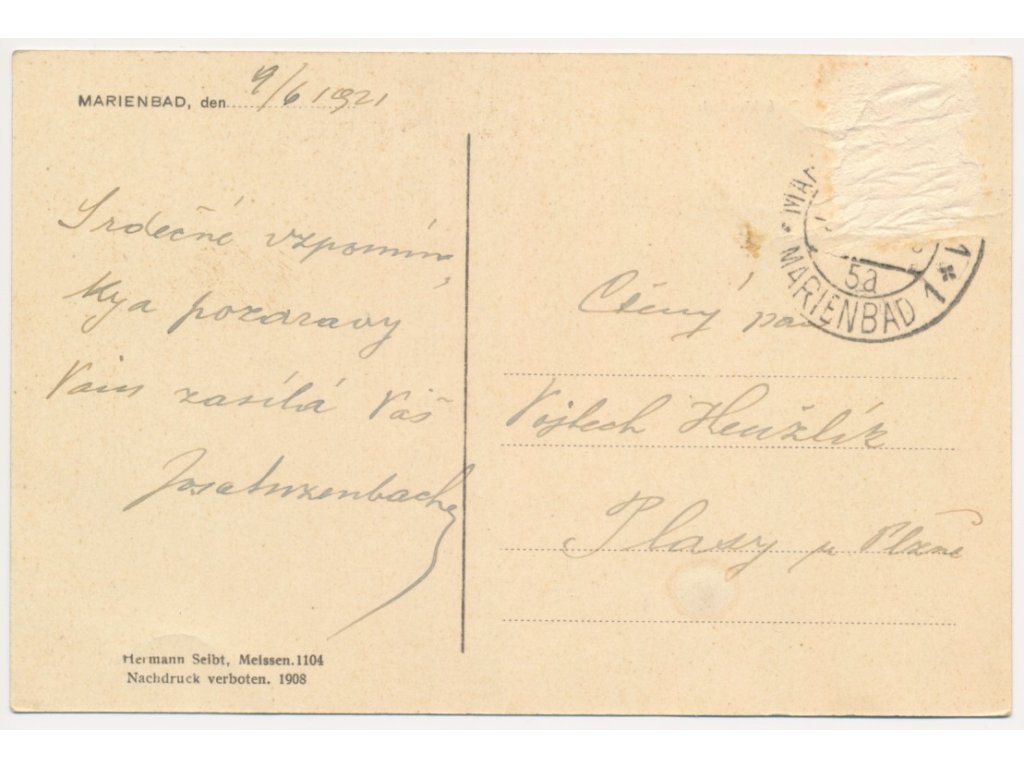 MARIENBAD, den 9/6 1921
Srdečné vzpomín
ky a pozdravy
Vám zasílá Váš
MARIENBAD 1
5a
1
Ctěný pan
Vojtech Heužlík
Plasy u Plzně
Hermann Seibt, Meissen. 1104
Nachdruck verboten. 1908